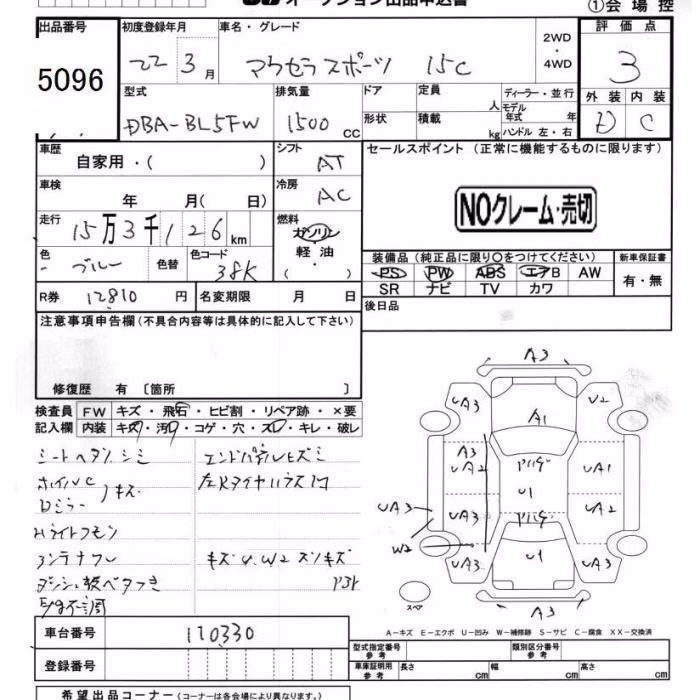 オークション出品申込書
①会場控
出品番号
5096
初度登録年月
22 3月
車名・グレード
アクセラスポーツ 15C
2WD
・
4WD
評価点
3
型式
DBA-BL5FW
排気量
1500 CC
ドア
形状
定員 人
積載 kg
ディーラー・並行
モデル年式 年
ハンドル 左・右
外装 内装
D C
車歴
自家用・( )
シフト
AT
セールスポイント (正常に機能するものに限ります)
NOクレーム・売切
車検
年 月( 日)
冷房
AC
走行
15万3千126 km
燃料
ガソリン
軽油
( ・ )
色
ブルー
色替
色コード
38K
装備品 (純正品に限り〇をつけてください)
PS PW ABS エアB AW
SR ナビ TV カワ
新車保証書
有・無
R券 12810 円
名変期限 月 日
後日品
注意事項申告欄 (不具合内容等は具体的に記入して下さい)
修復歴 有 〔箇所 〕
検査員記入欄
FW キズ・飛石・ヒビ割・リペア跡・×要
内装 キズ・汚レ・コゲ・穴・スレ・キレ・破レ
シートヘタリ シミ
ホイルVC
Dミラー
キズ
Hライトクモリ
アンテナ
ダッシュ板ベタつき
キズ U.W2
A3
UA3
V2
A1
A3
UA2
UA1
U1
UA3
UA2
UA3
W2
UA3
U1
UA3
スペア
A3
A−キズ E−エクボ U−凹み W−補修跡 S−サビ C−腐食 XX−交換済
車台番号
110330
登録番号
型式指定番号 参考
類別区分番号 参考
車庫証明用 参考
長さ cm
幅 cm
高さ cm
希望出品コーナー (コーナーは各会場により異なります。)